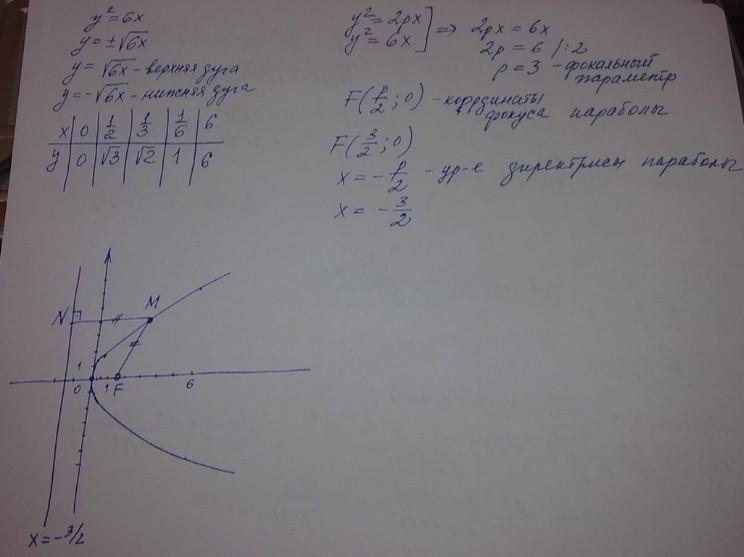 y² = 6x
y = ±√6x
y = √6x - верхняя дуга
y = -√6x - нижняя дуга
x | 0 | 1/2 | 1/3 | 1/6 | 6
y | 0 | √3 | √2 | 1 | 6
y² = 2px
y² = 6x ] ⇒ 2px = 6x
2p = 6 /:2
p = 3 - фокальный
параметр
F(p/2; 0) - координаты
фокуса параболы
F(3/2; 0)
x = -p/2 - ур-е директрисы параболы
x = -3/2
N
M
1
0
1
F
6
x = -3/2